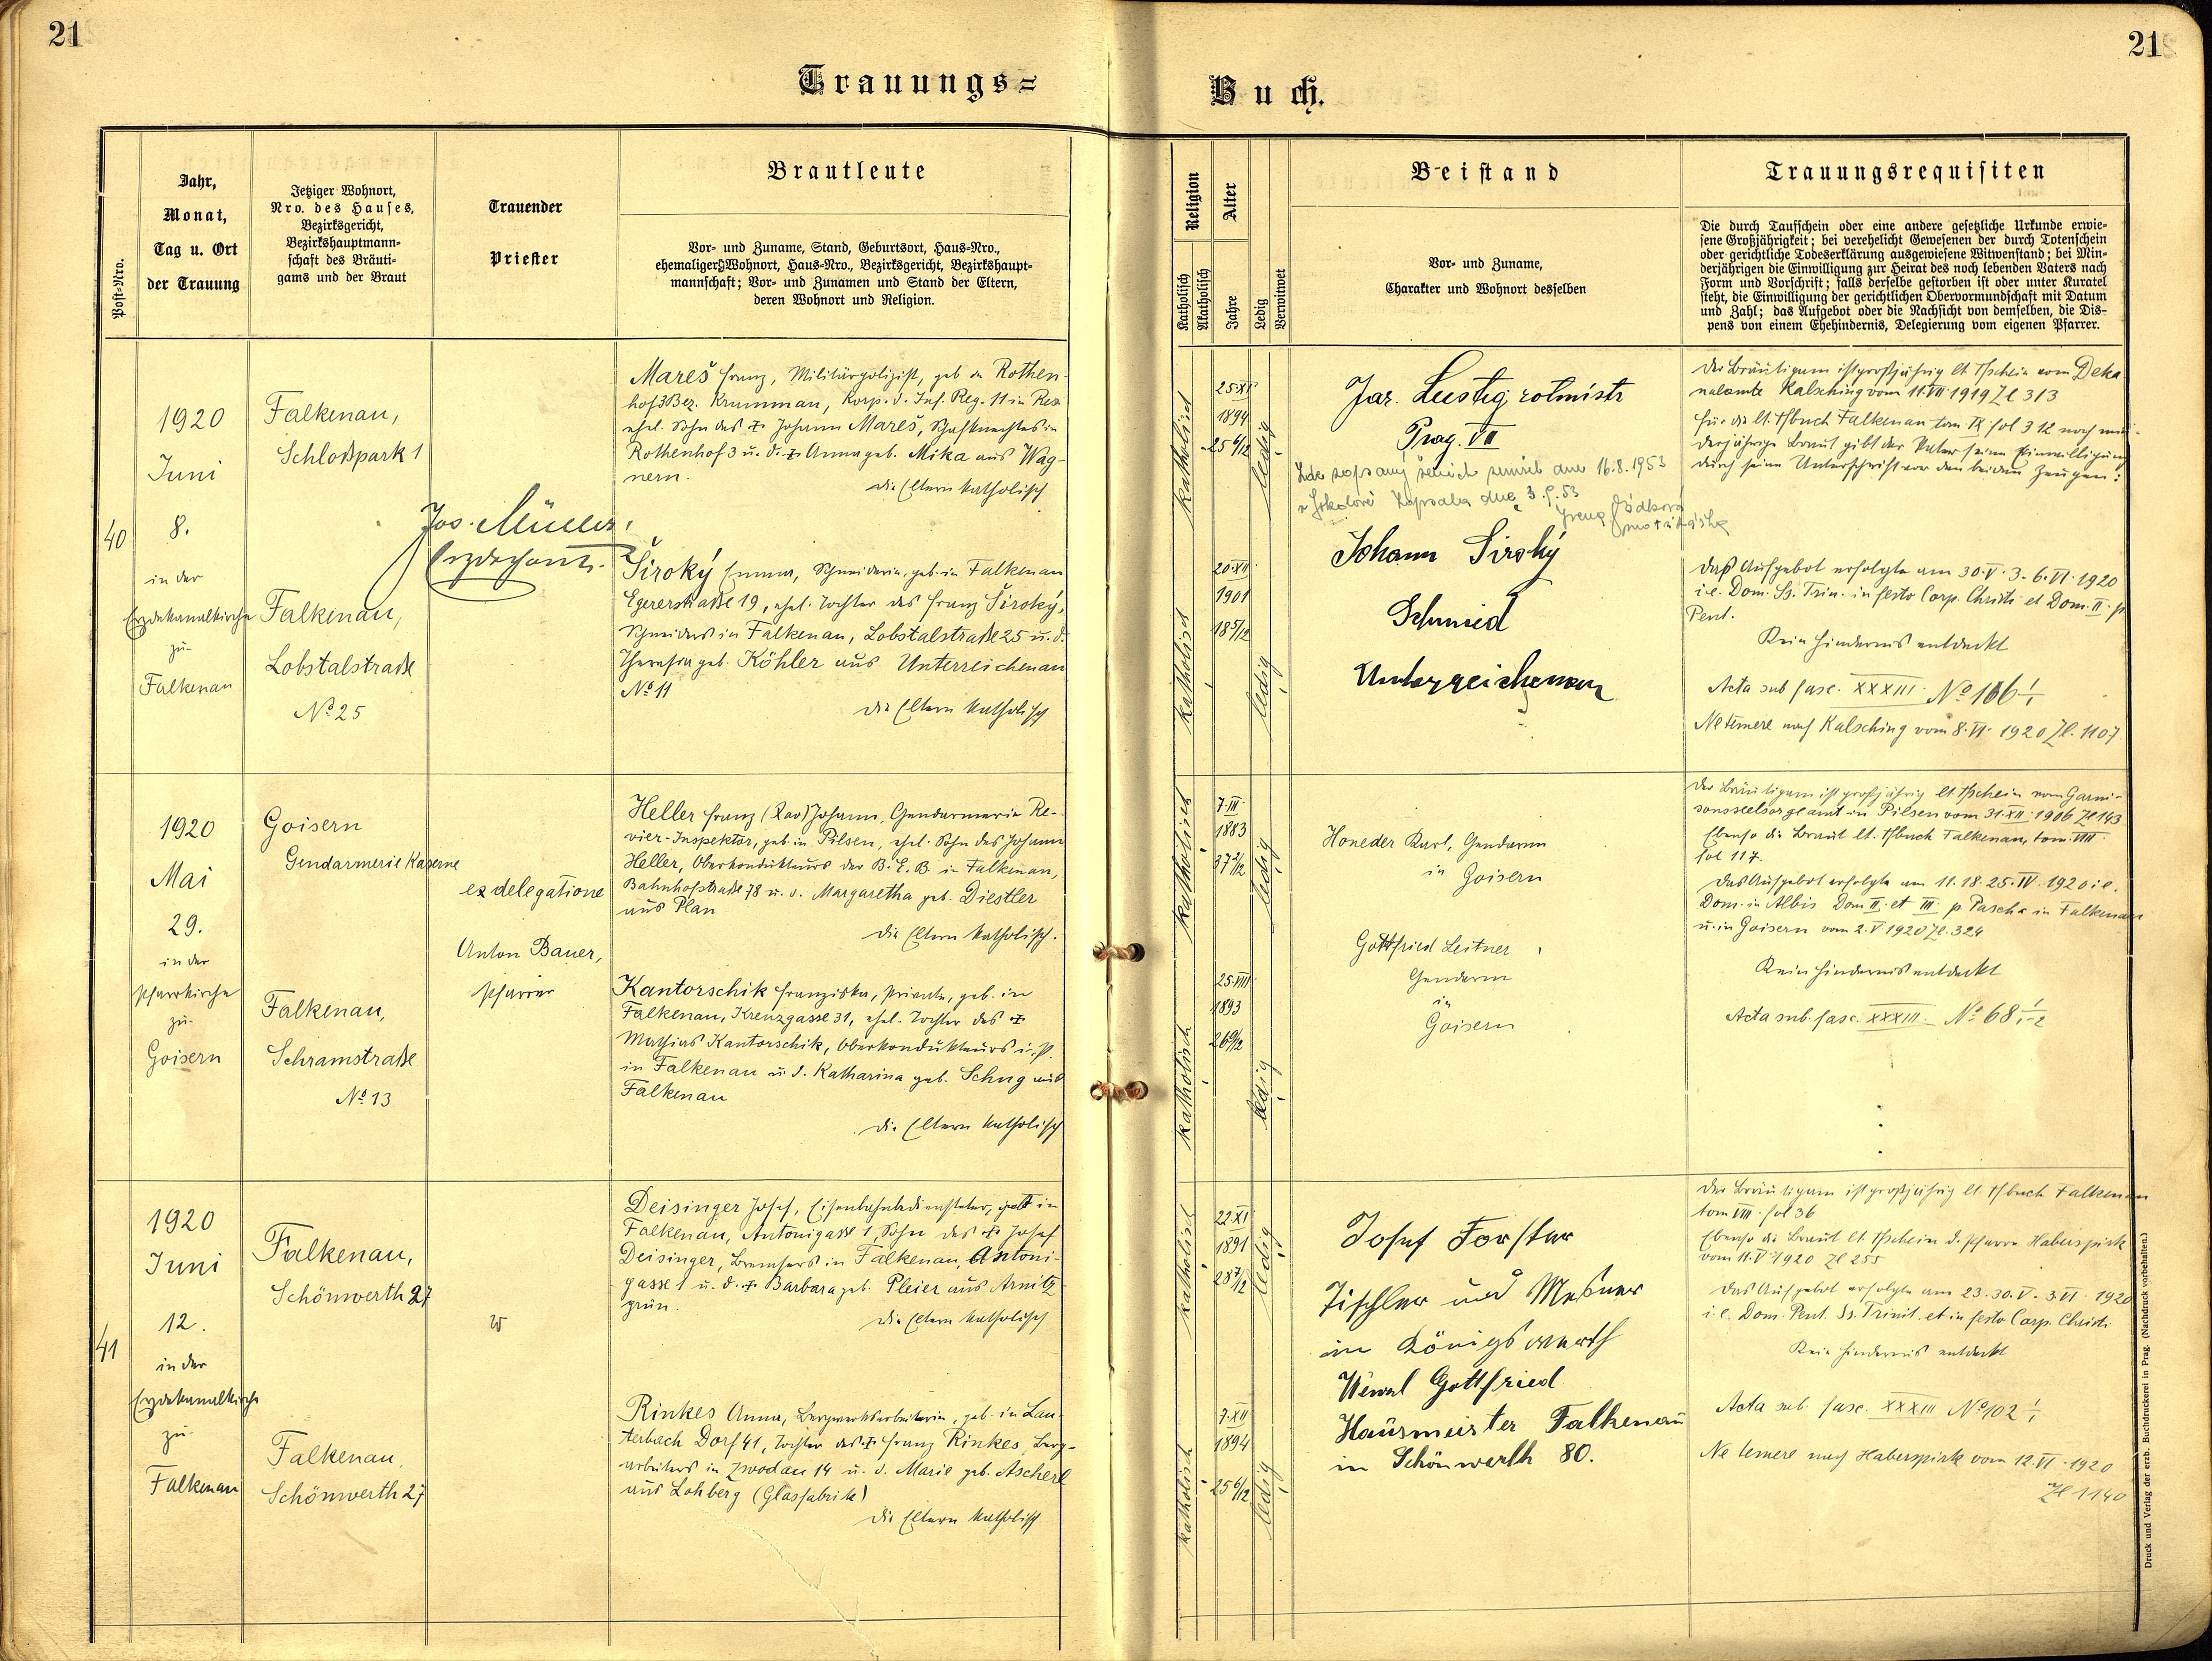 21
21
Trauungs=
Buch.
Post=Nro.
Jahr,
Monat,
Tag u. Ort
der Trauung
Jetziger Wohnort,
Nro. des Hauses,
Bezirksgericht,
Bezirkshauptmann=
schaft des Bräuti=
gams und der Braut
Trauender
Priester
Brautleute
Vor- und Zuname, Stand, Geburtsort, Haus=Nro.,
ehemaliger Wohnort, Haus=Nro., Bezirksgericht, Bezirkshaupt=
mannschaft; Vor- und Zunamen und Stand der Eltern,
deren Wohnort und Religion.
Religion
Katholisch
Akatholisch
Alter
Jahre
Ledig
Verwitwet
Beistand
Vor- und Zuname,
Charakter und Wohnort desselben
Trauungsrequisiten
Die durch Taufschein oder eine andere gesetzliche Urkunde erwie=
sene Großjährigkeit; bei verehelicht Gewesenen der durch Totenschein
oder gerichtliche Todeserklärung ausgewiesene Witwenstand; bei Min=
derjährigen die Einwilligung zur Heirat des noch lebenden Vaters nach
Form und Vorschrift; falls derselbe gestorben ist oder unter Kuratel
steht, die Einwilligung der gerichtlichen Obervormundschaft mit Datum
und Zahl; das Aufgebot oder die Nachsicht von demselben, die Dis=
pens von einem Ehehindernis, Delegierung vom eigenen Pfarrer.
40
1920
Juni
8.
in der
Erzdekanalkirche
zu
Falkenau
Falkenau,
Schloßpark 1
Falkenau,
Lobstalstraße
No 25
Jos. Müller,
Erzdechant.
Mareš Franz, Militärpolizist, geb. in Rothen-
hof 3 Bez. Krummau, Korp. d. Inf. Reg. 11 in
ehel. Sohn des † Johann Mareš, Schafknechtes in
Rothenhof 3 u. d. † Anna geb. Mika aus Wag-
nern.
die Eltern katholisch
Široký Emma, Schneiderin, geb. in Falkenau
Egererstraße 19, ehel. Tochter des Franz Široký,
Schneiders in Falkenau, Lobstalstraße 25 u. d.
Theresia geb. Köhler aus Unterreichenau
No 11
die Eltern katholisch
katholisch
25.XI.
1894
25 6/12
ledig
katholisch
20.XII.
1901
18 5/12
ledig
Jar. Lustig rotmistr
Prag. VII
Zde zapsaný ženich zemřel dne 16.8.1953
v Sokolově Zapsala dne 3.9.53
Johann Široký
Schmied
Unterreichenau
Der Bräutigam ist großjährig lt. Tfschein vom Deka
nalamte Kalsching vom 11.VII 1919 Zl 313
Für die lt. Tfbuch Falkenau tom IX fol 312 noch min-
derjährige Braut gibt der Vater seine Einwilligung
durch seine Unterschrift vor den beiden Zeugen:
Das Aufgebot erfolgte am 30.V. 3. 6.VI. 1920
i.e. Dom. Ss. Trin. in festo Corp. Christi et Dom. II. p.
Pent.
Kein Hindernis entdeckt
Acta sub fasc. XXXIII. No 106
Ne temere nach Kalsching vom 8.VI. 1920 Zl. 1107
1920
Mai
29.
in der
Pfarrkirche
zu
Goisern
Goisern
Gendarmerie Kaserne
Falkenau,
Schramstraße
No 13
ex delegatione
Anton Bauer,
Pfarrer
Heller Franz (Xav) Johann, Gendarmerie Re-
vier-Inspektor, geb. in Pilsen, ehel. Sohn des Johann
Heller, Oberkondukteurs der B. E. B. in Falkenau,
Bahnhofstraße 78 u. d. Margaretha geb. Diestler
aus Plan
die Eltern katholisch.
Kantorschik Franziska, Private, geb. in
Falkenau, Kreuzgasse 31, ehel. Tochter des †
Mathias Kantorschik, Oberkondukteurs i. P.
in Falkenau u. d. Katharina geb. Schug aus
Falkenau
die Eltern katholisch
katholisch
7.III.
1883
37 2/12
ledig
katholisch
25.VIII.
1893
26 9/12
ledig
Honeder Karl, Gendarm
in Goisern
Gottfried Leitner
Gendarm
in
Goisern
Der Bräutigam ist großjährig lt. Tfschein vom Garni-
sonsseelsorgeamt in Pilsen vom 31.XII. 1906 Zl 143
Ebenso die Braut lt. Tfbuch Falkenau, tom. VIII.
fol 117.
Das Aufgebot erfolgte am 11. 18. 25. IV. 1920 i.e.
Dom. in Albis Dom II. et III. p. Pascha in Falkenau
u. in Goisern vom 2.V 1920 Zl. 324
Kein Hindernis entdeckt
Acta sub fasc. XXXIII. No 68
41
1920
Juni
12.
in der
Erzdekanalkirche
zu
Falkenau
Falkenau,
Schönwerth 27
Falkenau,
Schönwerth 27
Deisinger Josef, Eisenbahnbediensteter, geb. in
Falkenau, Antonigasse 1, Sohn des † Josef
Deisinger, Bremsers in Falkenau, Antoni-
gasse 1 u. d. † Barbara geb. Pleier aus Arnitz-
grün.
die Eltern katholisch
Rinkes Anna, Bergwerksarbeiterin, geb. in Lau-
terbach Dorf 41, Tochter des † Franz Rinkes, Berg-
arbeiters in Zwodau 14 u. d. Marie geb. Ascherl
aus Lohberg (Glasfabrik)
die Eltern katholisch
katholisch
22.XI.
1891
28 7/12
ledig
katholisch
7.XII
1894
25 6/12
ledig
Josef Forster
Tischler und Meßner
in Königswerth
Wenzl Gottfried
Hausmeister Falkenau
in Schönwerth 80.
Der Bräutigam ist großjährig lt. Tfbuch Falkenau
tom VIII. fol 36
Ebenso die Braut lt. Tfschein d. Pfarre Haberspirk
vom 11.V. 1920 Zl 255
Das Aufgebot erfolgte am 23. 30. V. 3.VI. 1920
i.e. Dom. Pent. Ss. Trinit. et in festo Corp. Christi.
Kein Hindernis entdeckt
Acta sub. fasc. XXXIII No 102
Ne temere nach Haberspirk vom 12.VI. 1920
Zl 1140
Druck und Verlag der erzb. Buchdruckerei in Prag. (Nachdruck vorbehalten.)